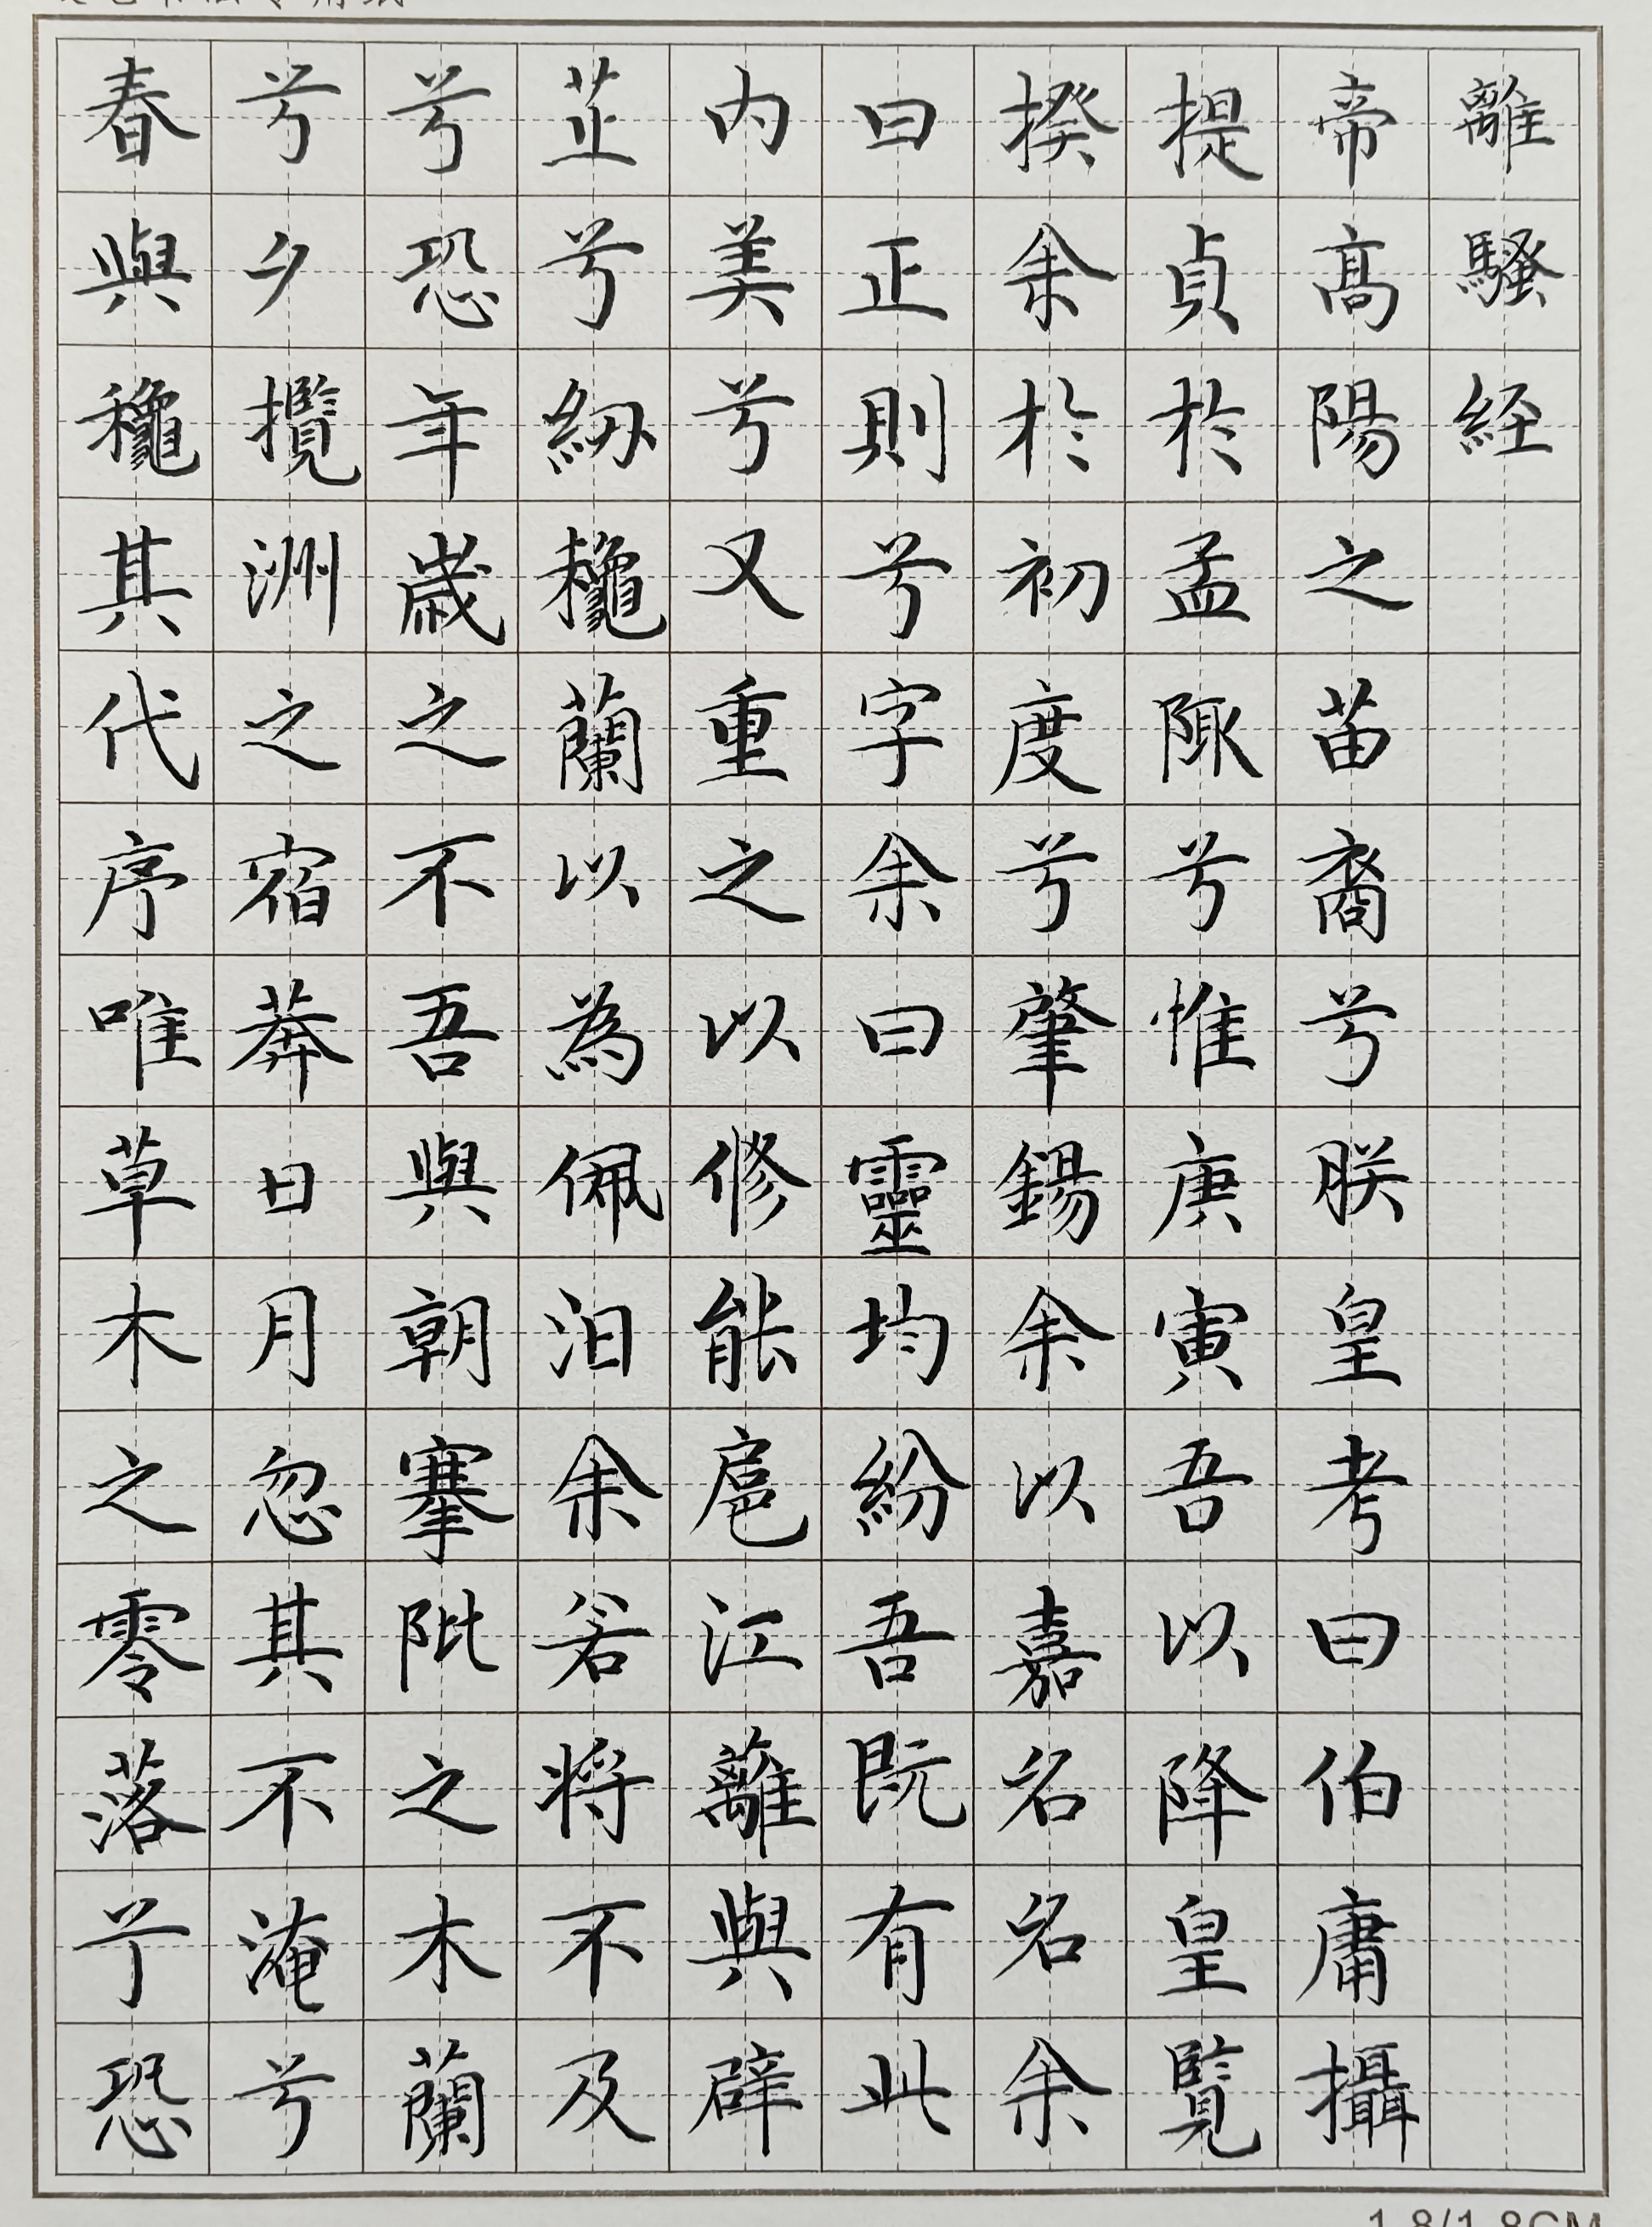 離騷経
帝髙陽之苗裔兮朕皇考曰伯庸攝
提貞於孟陬兮惟庚寅吾以降皇覽
揆余於初度兮肇錫余以嘉名名余
曰正則兮字余曰靈均紛吾既有此
内美兮又重之以修能扈江蘺與辟
芷兮紉龝蘭以為佩汩余若将不及
兮恐年歲之不吾與朝搴阰之木蘭
兮夕攬洲之宿莽日月忽其不淹兮
春與龝其代序唯草木之零落兮恐
1.8/1.8CM